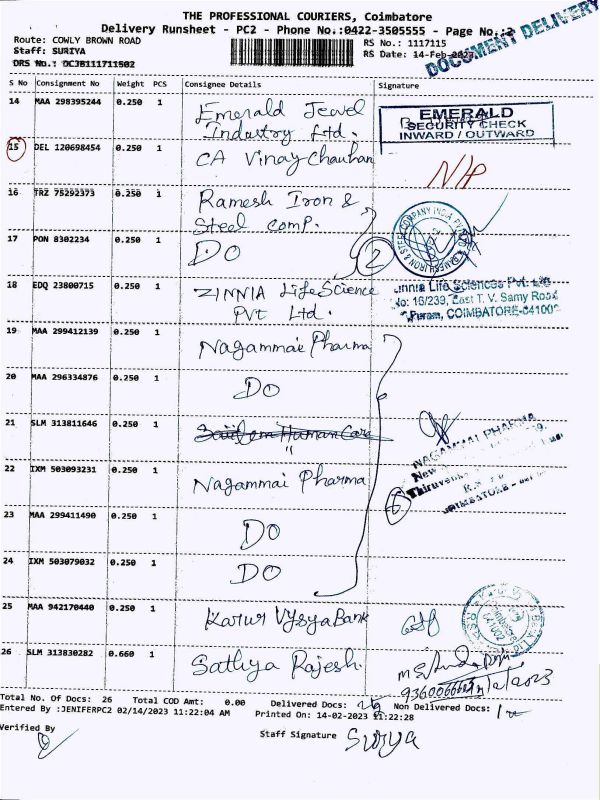 THE PROFESSIONAL COURIERS, Coimbatore
Delivery Runsheet - PC2 - Phone No.:0422-3505555 - Page No.:2
DOCUMENT DELIVERY
Route: COWLY BROWN ROAD
RS No.: 1117115
Staff: SURIYA
RS Date: 14-Feb-2023
DRS No.: DCJB111711502
S No Consignment No Weight PCS Consignee Details Signature
14 MAA 298395244 0.250 1 Emerald Jewel
Industry Ltd.
EMERALD
SECURITY CHECK
INWARD / OUTWARD
15 DEL 120698454 0.250 1 CA Vinay Chauhan
16 TRZ 75292373 0.250 1 Ramesh Iron &
Steel comp.
17 PON 8302234 0.250 1 DO
2
18 EDQ 23800715 0.250 1 ZINNIA LifeScience
Pvt Ltd.
Zinnia Life Sciences Pvt. Ltd
No: 16/239, East T. V. Samy Road
Puram, COIMBATORE-641002
19 MAA 299412139 0.250 1 Nagammai Pharma
20 MAA 296334876 0.250 1 DO
21 SLM 313811646 0.250 1
"
NAGAMMAI PHARMA
New
COIMBATORE
22 IXM 503093231 0.250 1 Nagammai Pharma
6
23 MAA 299411490 0.250 1 DO
24 IXM 503079032 0.250 1 DO
25 MAA 942170440 0.250 1 Karur Vysya Bank
26 SLM 313830282 0.660 1 Sathya Rajesh
Total No. Of Docs: 26 Total COD Amt: 0.00 Delivered Docs: Non Delivered Docs: 1
Entered By :JENIFERPC2 02/14/2023 11:22:04 AM Printed On: 14-02-2023 11:22:28
Verified By
Staff Signature Suriya